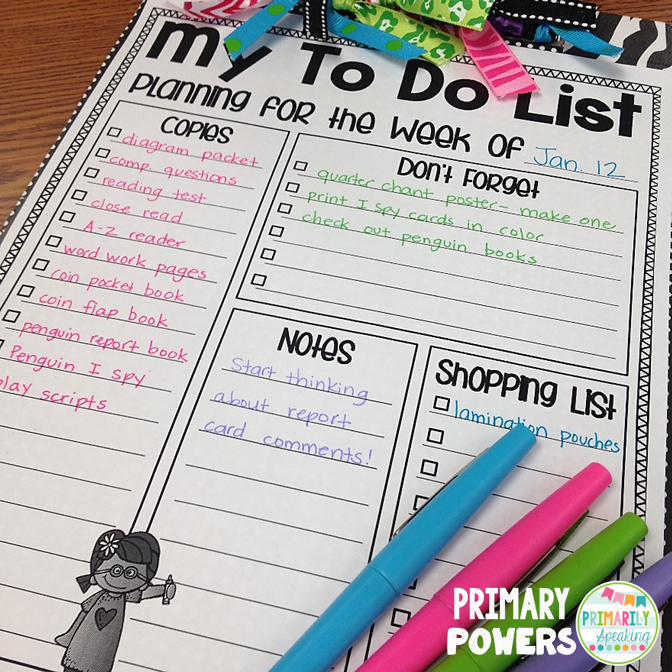 My To Do List
Planning for the Week of Jan. 12
Copies
diagram packet
comp. questions
reading test
close read
A-Z reader
word work pages
coin pocket book
coin flap book
penguin report book
Penguin I spy
play scripts
Don't Forget
quarter chant poster- make one
print I spy cards in color
check out penguin books
Notes
Start thinking
about report
card comments!
Shopping List
lamination pouches
PRIMARY
POWERS
PRIMARILY
Speaking